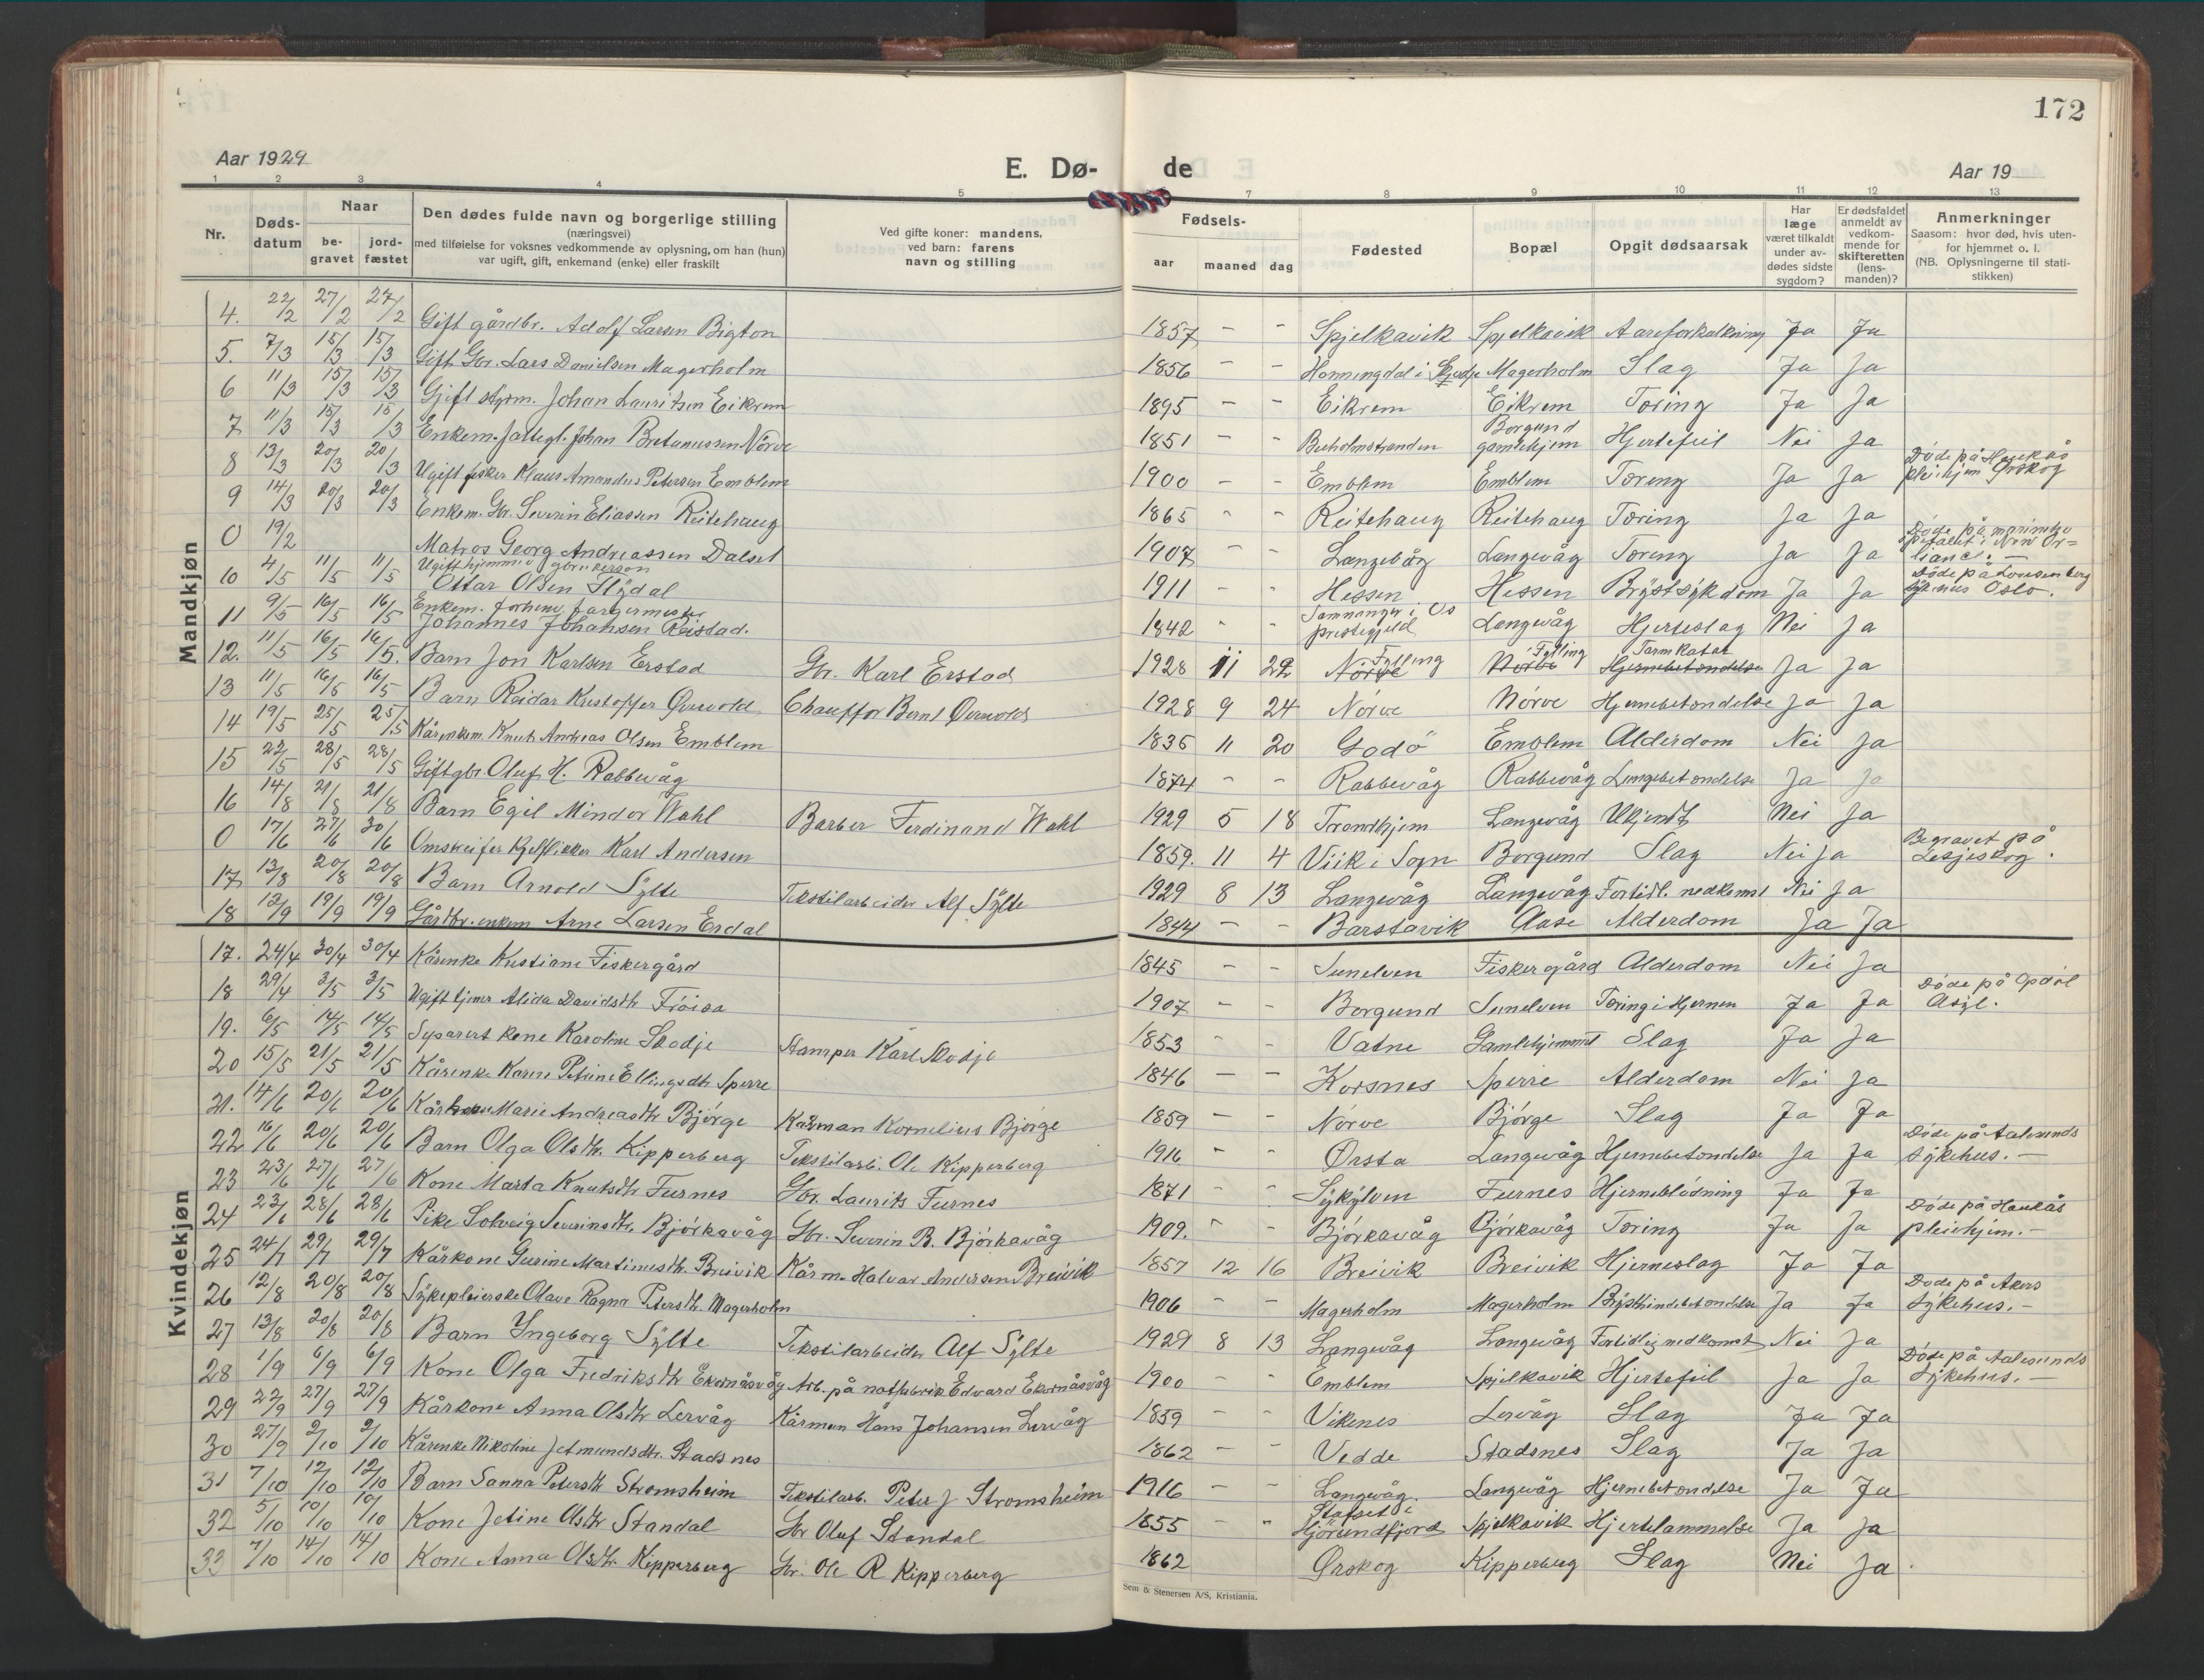 172
Aar 1929
E. Dø-
de
Aar 19
1 2 3 4 5 7 8 9 10 11 12 13
Nr.
Døds-
datum
Naar
be-
gravet
jord-
fæstet
Den dødes fulde navn og borgerlige stilling
(næringsvei)
med tilføielse for voksnes vedkommende av oplysning, om han (hun)
var ugift, gift, enkemand (enke) eller fraskilt
Ved gifte koner: mandens,
ved barn: farens
navn og stilling
Fødsels-
aar maaned dag
Fødested
Bopæl
Opgit dødsaarsak
Har
læge
været tilkaldt
under av-
dødes sidste
sygdom?
Er dødsfaldet
anmeldt av
vedkom-
mende for
skifteretten
(lens-
manden)?
Anmerkninger
Saasom: hvor død, hvis uten-
for hjemmet o. l.
(NB. Oplysningerne til stati-
stikken)
Mandkjøn
4. 22/2 27/2 27/2 Gift gårdbr. Adolf Larsen Bigton 1857 - - Spjelkavik Spjelkavik Aareforkalkning Ja Ja
5. 7/3 15/3 15/3 Gift Gbr. Lars Danielsen Magerholm 1856 - - Honningdal i Skodje Magerholm Slag Ja Ja
6 11/3 15/3 15/3 Gift styrm. Johan Lauritsen Eikrem 1895 - - Eikrem Eikrem Tæring Ja Ja
7 11/3 15/3 15/3 Enkem. Johan Nörve 1851 - - Borgund gamlehjem Hjertefeil Nei Ja
8 13/3 20/3 20/3 Ugift fisker Klaus Amandus Petersen Emblem 1900 - - Emblem Emblem Tæring Ja Ja Døde på Haukås pleiehjem Ørskog
9 14/3 20/3 20/3 Enkem. Gbr. Severin Eliassen Reitehaug 1865 - - Reitehaug Reitehaug Tæring Ja Ja
0 19/2 Matros Georg Andreassen Dalset 1907 - - Langevåg Langevåg Tæring Ja Ja Døde på marineho
spitalet i New Or=
lians. -
10 4/5 11/5 11/5 Ugift hjemme
Ottar Olsen Flydal 1911 - - Hessen Hessen Brystsykdom Ja Ja Døde på Lovisenberg
sykehus Oslo.
11 9/5 16/5 16/5 Enkem. forhenv. fargermester
Johannes Johansen Reistad. 1842 - - Samnanger i Os
prestegjeld Langevåg Hjerteslag Nei Ja
12. 11/5 16/5 16/5. Barn Jon Karlsen Erstad Gbr. Karl Erstad 1928 11 22 Nörve Fylling Nörve Fylling Hjernebetændelse Tarmkatar Ja Ja
13 11/5 16/5 16/5 Barn Reidar Kristoffer Øvrevold Chauffør Bernt Øvrevold 1928 9 24 Nörve Nörve Hjernebetændelse Ja Ja
14 19/5 25/5 25/5 Kårenkem. Knut Andreas Olsen Emblem 1835 11 20 Godö Emblem Alderdom Nei Ja
15 22/5 28/5 28/5 Gift gbr. Oluf H. Rabbevåg 1874 - - Rabbevåg Rabbevåg Lungebetændelse Ja Ja
16 14/8 21/8 21/8 Barn Egil Mindor Wahl Barber Ferdinand Wahl 1929 5 18 Trondhjem Langevåg Ukjendt Nei Ja
0 17/6 27/6 30/6 Omstreifer Kjelflikker Karl Andersen 1859. 11 4 Viik i Sogn Borgund Slag Nei Ja Begravet på
Lesjeskog.
17 13/8 20/8 20/8 Barn Arnold Sylte Tekstilarbeider Alf Sylte 1929 8 13 Langevåg Langevåg Fortidl. nedkomst Nei Ja
18 12/9 19/9 19/9 Gårdbr. enkem Arne Larsen Erdal 1844 - - Barstavik Aase Alderdom Ja Ja
Kvindekjøn
17. 24/4 30/4 30/4 Kårenke Kristiane Fiskergård 1845 - - Sunelven Fiskergård Alderdom Nei Ja
18 29/4 3/5 3/5 Ugift tjener Alida Davidsdtr Fröisa 1907 - - Borgund Sunelven Tæring i Hjernen Ja Ja Døde på Opdöl
Asyl.
19. 6/5 14/5 14/5 Separert kone Karoline Skodje Stamper Karl Skodje 1853 - - Vatne Gamlehjemmet Slag Ja Ja
20 15/5 21/5 21/5 Kårenke Karen Petrine Ellingsdtr Sperre 1846 - - Korsnes Sperre Alderdom Nei Ja
21. 14/6 20/6 20/6 Kårkone Marie Andreasdtr Bjørge Kårman Kornelius Bjørge 1859 - - Nörve Bjørge Slag Ja Ja
22 16/6 20/6 20/6 Barn Olga Olsdtr. Kipperberg Tekstilarb. Ole Kipperberg 1916 - - Ørsta Langevåg Hjernebetændelse Ja Ja Døde på Aalesunds
sykehus. -
23 23/6 27/6 27/6 Kone Marta Knutsdtr Furnes Gbr. Laurits Furnes 1871 - - Sykylven Furnes Hjerneblödning Ja Ja
24 23/6 28/6 28/6 Pike Solveig Severinsdtr. Björkavåg Gbr. Severin R. Björkavåg 1909. - - Björkavåg Björkavåg Tæring Ja Ja Døde på Haukås
pleiehjem. -
25 24/7 29/7 29/7 Kårkone Gurine Martinusdtr. Breivik Kårm. Halvar Andersen Breivik 1857 12 16 Breivik Breivik Hjerneslag Ja Ja
26 12/8 20/8 20/8 Sykepleierske Olave Ragna Petersdtr. Magerholm 1906 - - Magerholm Magerholm Brysthindebetændelse Ja Ja Døde på Akers
sykehus. -
27 13/8 20/8 20/8 Barn Ingeborg Sylte Tekstilarbeider Alf Sylte 1929 8 13 Langevåg Langevåg Fortidlig nedkomst Nei Ja
28 1/9 6/9 6/9 Kone Olga Fredriksdtr Ekornåsvåg Arb. på notfabrik Edvard Ekornåsvåg 1900 - - Emblem Spjelkavik Hjertefeil Ja Ja Døde på Aalesunds
sykehus. -
29 22/9 27/9 27/9 Kårkone Anna Olsdtr Lervåg Kårman Hans Johansen Lervåg 1859 - - Vikenes Lervåg Slag Ja Ja
30 27/9 2/10 2/10 Kårenke Nikoline Jetmundsdtr. Stadsnes 1862 - - Vedde Stadsnes Slag Ja Ja
31 7/10 12/10 12/10 Barn Sanna Petersdtr Strømsheim Tekstilarb. Peter J Strømsheim 1916 - - Langevåg. Langevåg Hjernebetændelse Ja Ja
32 5/10 10/10 10/10 Kone Jetine Olsdtr Standal Gbr Oluf Standal 1855 - - Stafset i
Hjørundfjord Spjelkavik Hjertelammelse Ja Ja
33 7/10 14/10 14/10 Kone Anna Olsdtr. Kipperberg Gbr. Ole R Kipperberg 1862 Ørskog Kipperberg Slag Nei Ja
Sem & Stenersen A/S, Kristiania.